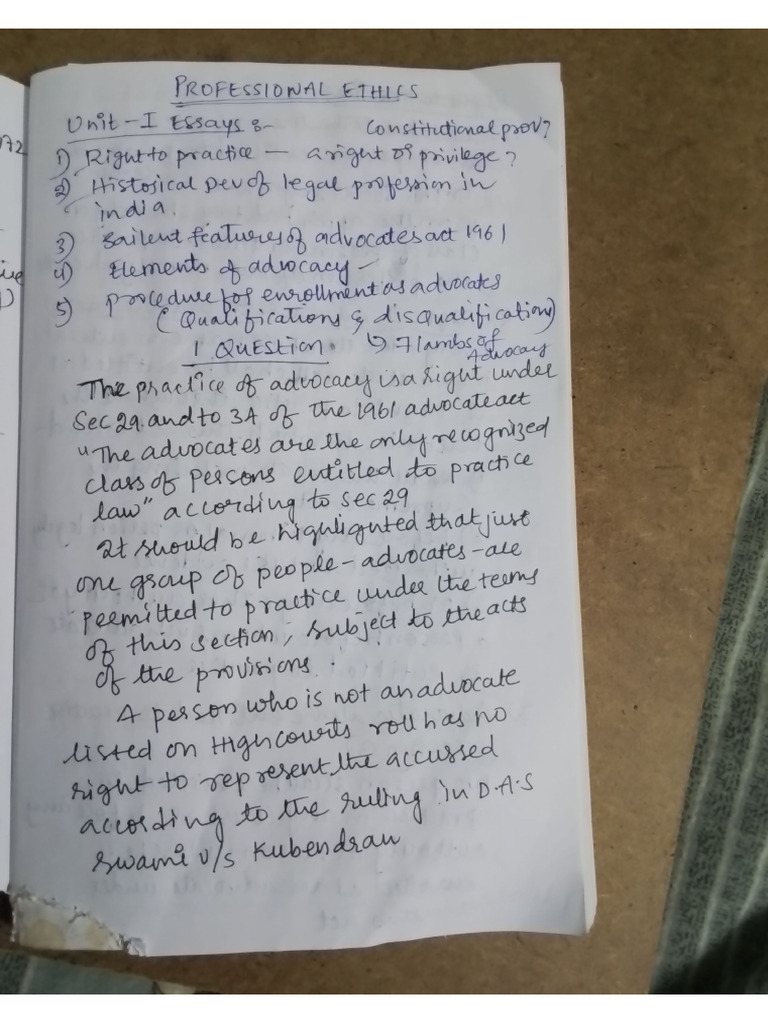 PROFESSIONAL ETHICS
Unit-I Essays :-
Constitutional prov?
1) Right to practice — a right or privilege?
2) Historical Dev of legal profession in
india.
3) Sailent features of advocates act 1961
4) Elements of advocacy -
5) procedure for enrollment as advocates
(Qualifications & disqualification)
1 QUESTION. ↳ 7 lambs of
Advocacy
The practice of advocacy is a right under
Sec 29 and to 34 of the 1961 advocate act
"The advocates are the only recognized
class of persons entitled to practice
law" according to sec 29
It should be highlighted that just
one group of people - advocates - are
permitted to practice under the terms
of this section, subject to the acts
of the provisions.
A person who is not an advocate
listed on High courts roll has no
right to represent the accussed
according to the ruling in D.A.S
Swami v/s Kubendran
172